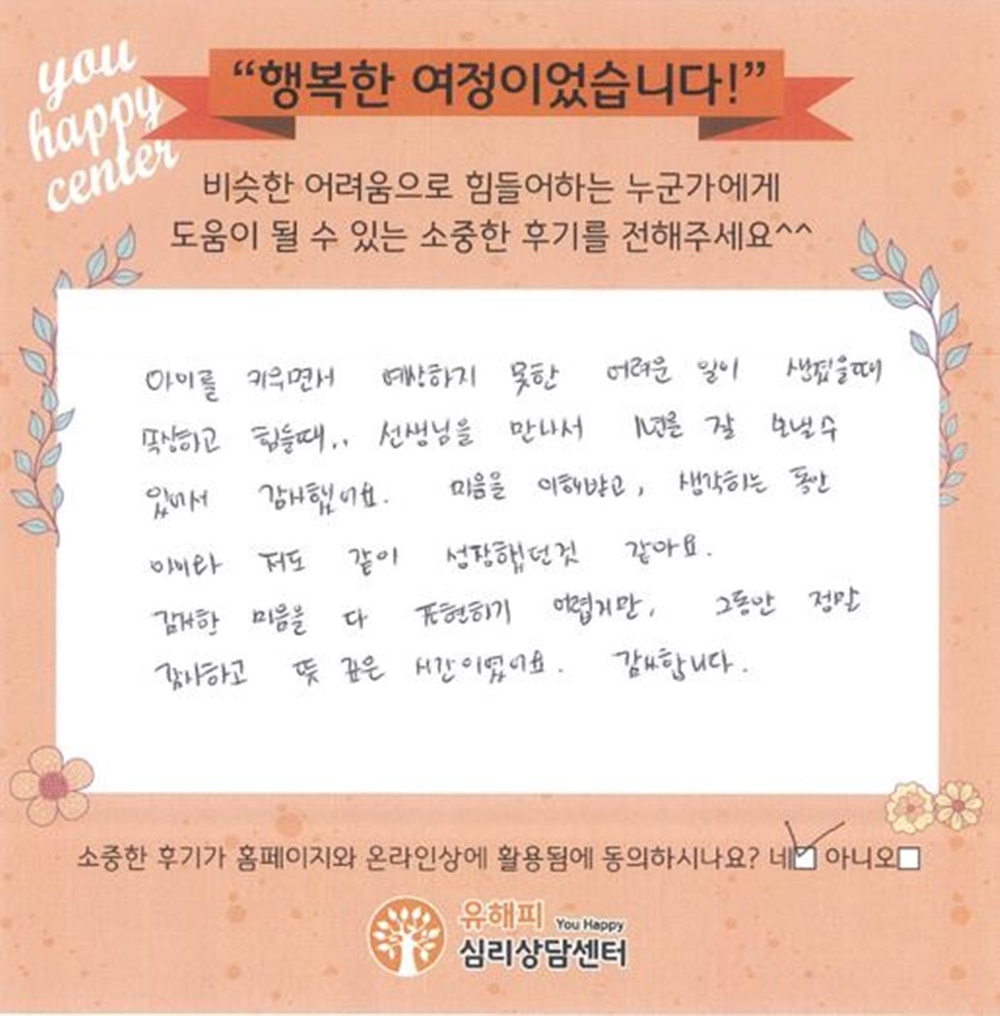 you
happy
center
“행복한 여정이었습니다!”
비슷한 어려움으로 힘들어하는 누군가에게
도움이 될 수 있는 소중한 후기를 전해주세요^^
아이를 키우면서 예상하지 못한 어려운 일이 생겼을때
속상하고 힘들때.. 선생님을 만나서 1년을 잘 보낼수
있어서 감사했어요. 마음을 이해받고, 생각하는 동안
아이와 저도 같이 성장했던것 같아요.
감사한 마음을 다 표현하기 어렵지만, 그동안 정말
감사하고 뜻 깊은 시간이였어요. 감사합니다.
소중한 후기가 홈페이지와 온라인상에 활용됨에 동의하시나요? 네 아니오
유해피 You Happy
심리상담센터